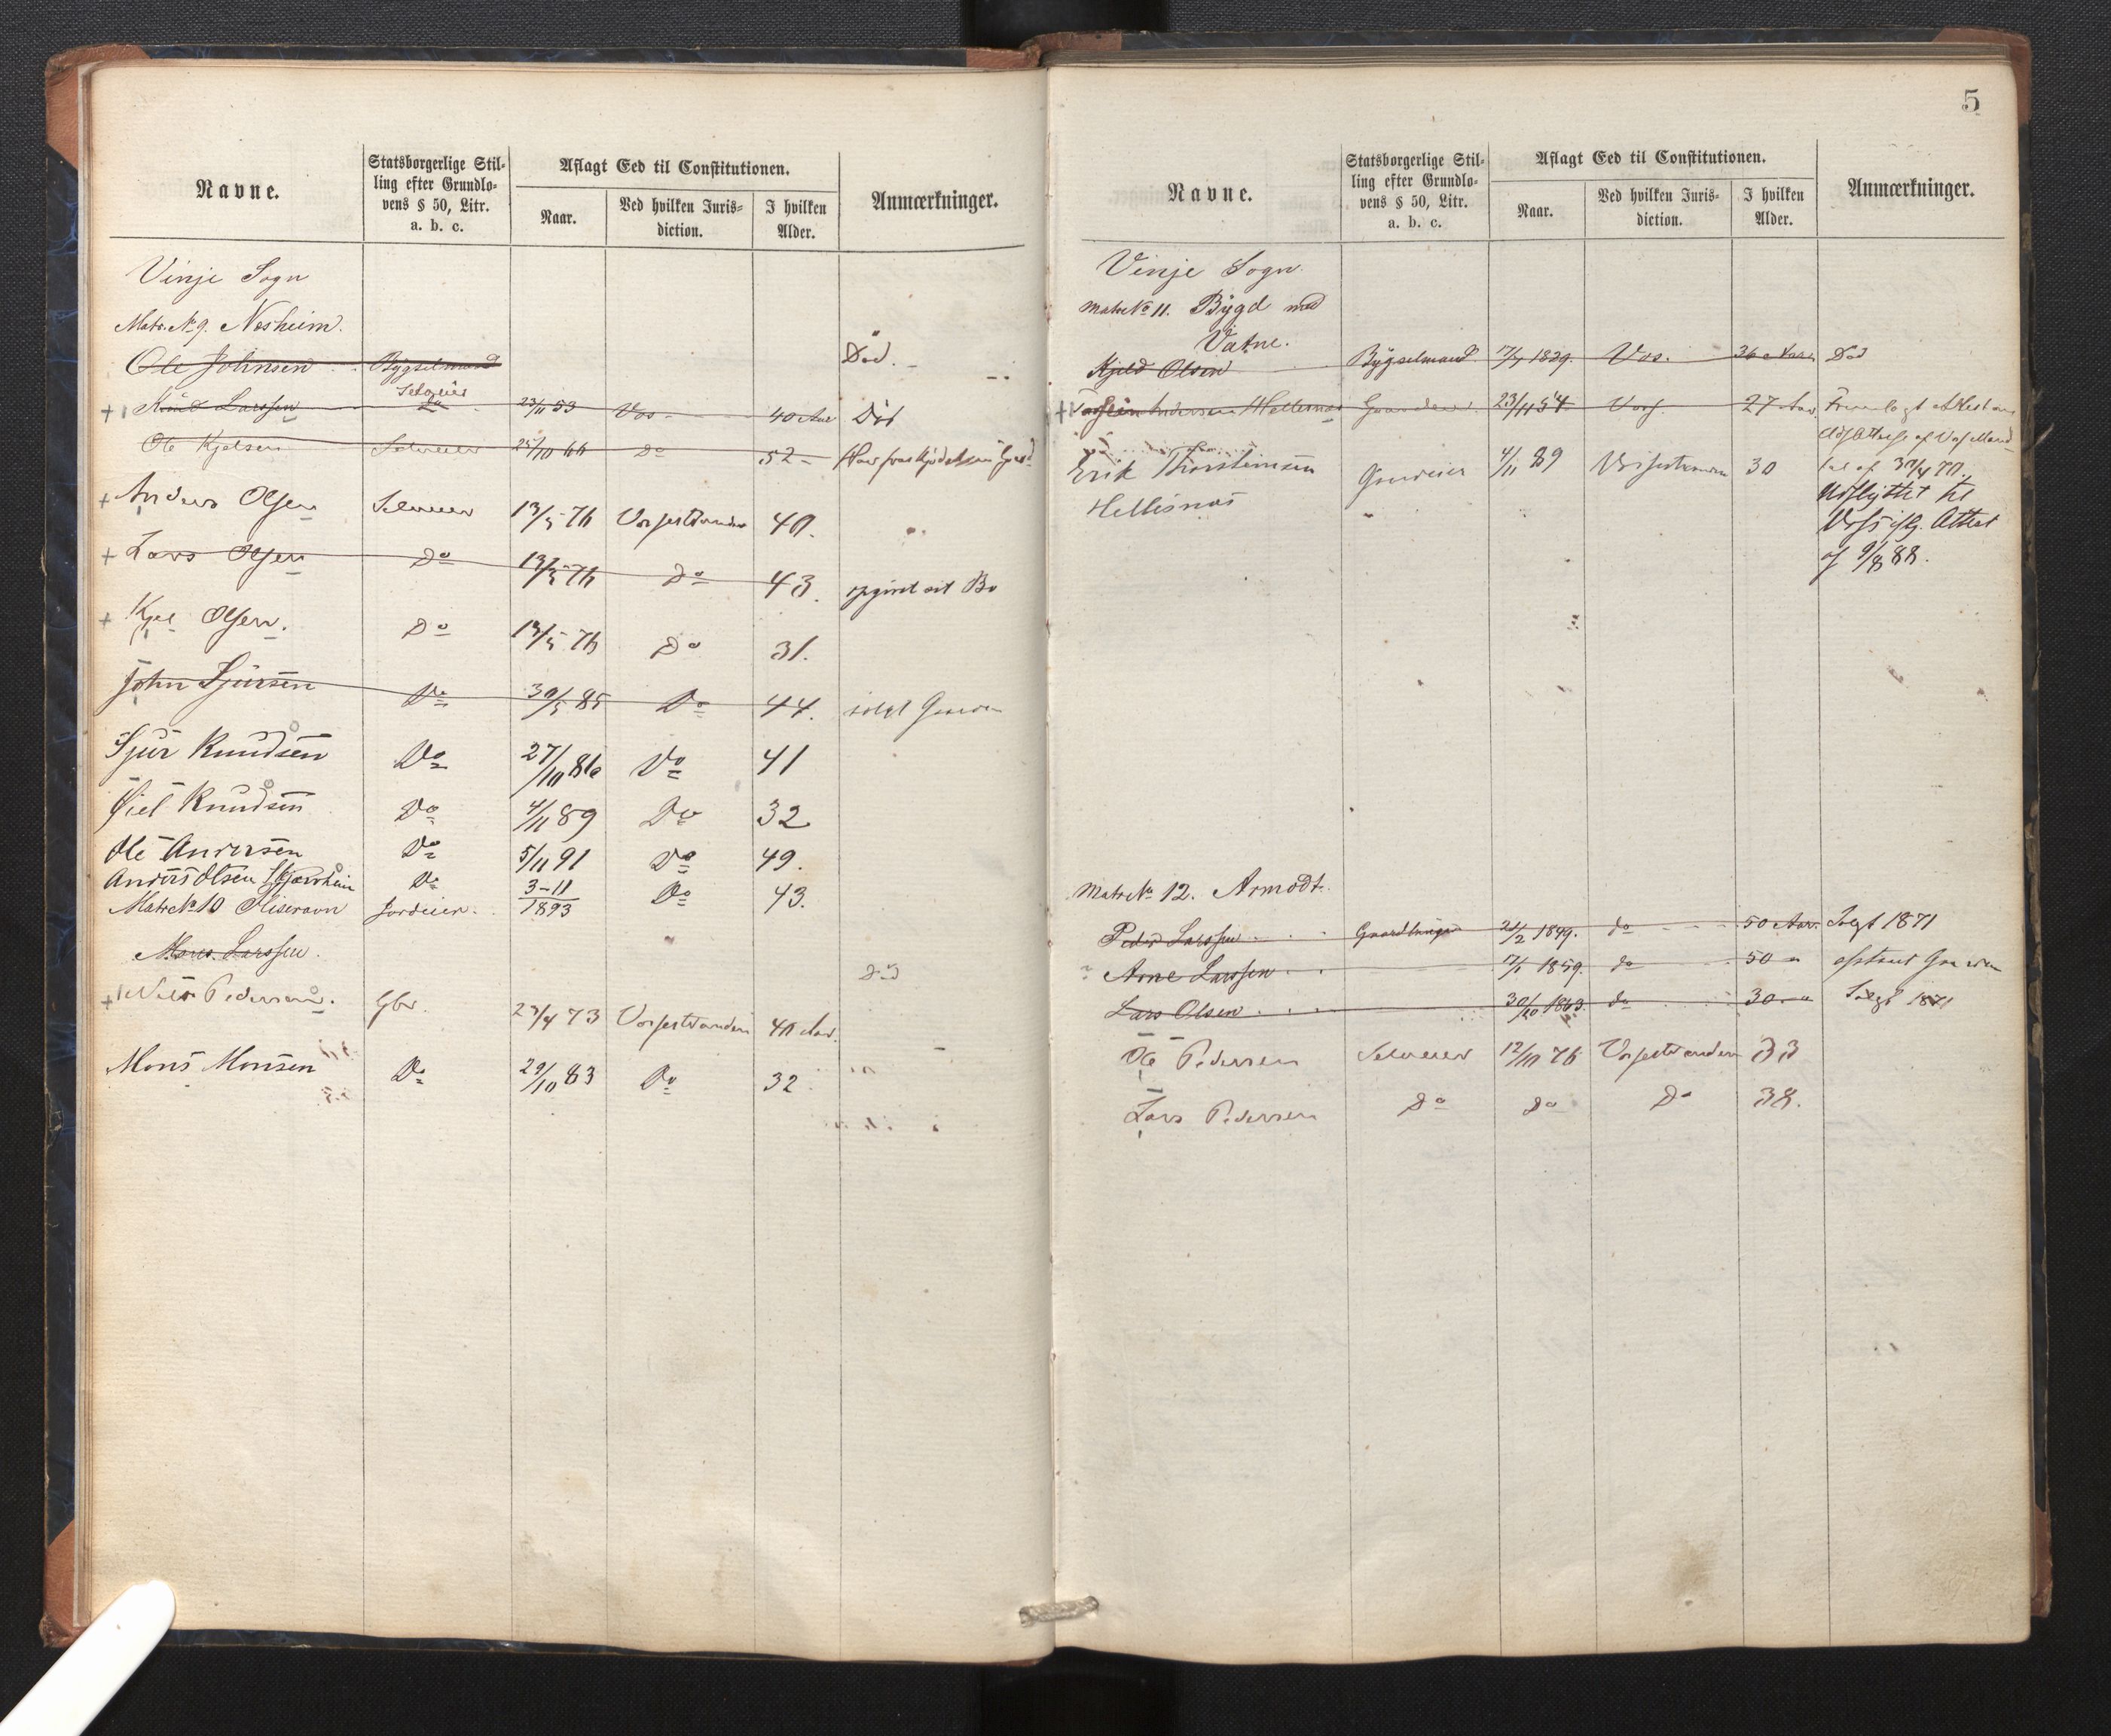 Navne.
Statsborgerlige Stil-
ling efter Grundlo-
vens § 50, Litr.
a. b. c.
Aflagt Eed til Constitutionen.
Naar.
Ved hvilken Juris-
diction.
I hvilken
Alder.
Anmærkninger.
Vinje Sogn
Matr. No 9. Nesheim.
Ole Johnsen Bygselmand Død.
Selveier
Knud Larssen Do 23/11 53 Vos 40 Aar Død
Ole Kjelsen Selveier 25/10 66 Do 52
Anders Olsen Selveier 13/5 76 Vossestranden 40.
Lars Olsen Do 13/5 76 Do 43. opgivet sit Bo
Kjel Olsen. Do 13/5 76 Do 31.
John Sjursen Do 30/5 85 Do 44. solgt Gaarden
Sjur Knudsen Do 27/10 86 Do 41
Knudsen Do 4/11 89 Do 32
Ole Andersen Do 5/11 91 Do 49.
Anders Olsen Do 3-11 1893 Do 43.
Matr No 10 Jordeier.
Mons Larssen. Død
Nils Pedersen. Gbr. 73 Vossestranden 40 Aar.
Mons Monsen Do 29/10 83 Do 32
5
Navne.
Statsborgerlige Stil-
ling efter Grundlo-
vens § 50, Litr.
a. b. c.
Aflagt Eed til Constitutionen.
Naar.
Ved hvilken Juris-
diction.
I hvilken
Alder.
Anmærkninger.
Vinje Sogn.
Matr No 11. Bygd med
Vatne.
Kjeld Olsen Bygselmand 17/7 1829. Vos. 36 Aar Død
Torstein Andersen Hellesnæs 23/11 54 Voss. 27 Aar Fremlagt Attest om
Erik Thorsteinsen Gaardeier 4/11 89 Vossestranden 30
Hellesnæs
af 30/4 70.
Udflyttet til
Voss iflg. Attest
af 9/8 88.
Matr No 12. Armodt.
Peder Larssen Gaardbruger 1849. do 50 Aar Solgt 1871
Arne Larssen 1859. do 50 afstaaet Gaarden
Lars Olsen 30/10 1863. do 30 Solgt 1871
Ole Pedersen Selveier 12/10 76 Vossestranden 33
Lars Pedersen Do Do Do 38.